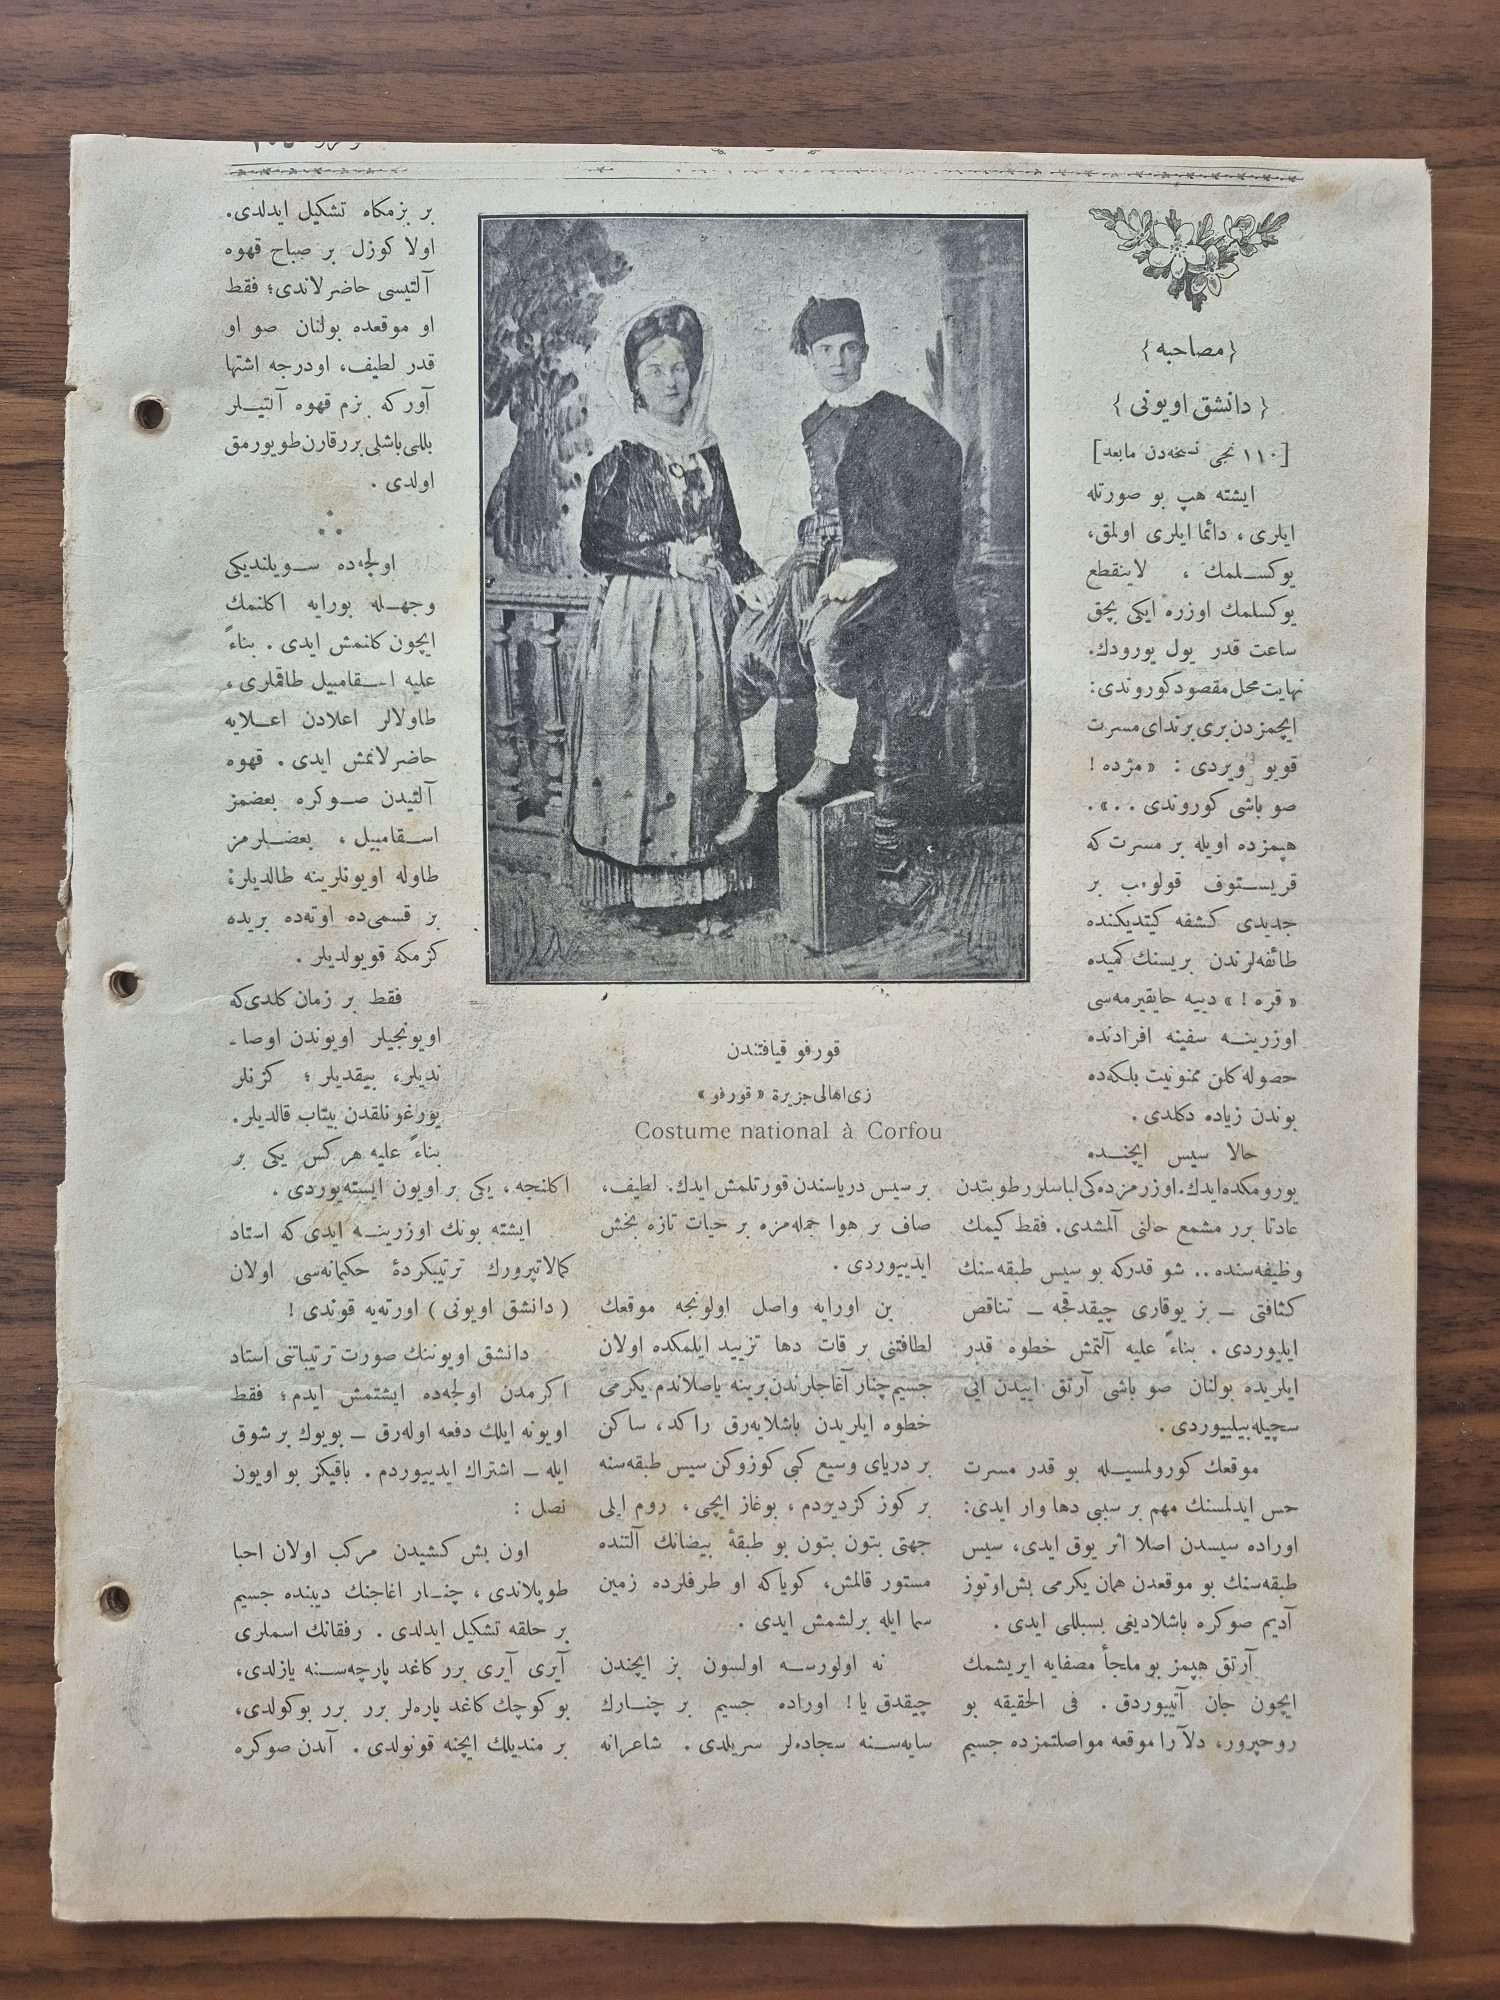 { مصاحبه }
{ دانشق اويونى }
[١١٠ نجى نسخه‌دن مابعد]
ايشته هپ بو صورتله
ايلرى ، دائما ايلرى اولمق،
يوكسلمك ، لاينقطع
يوكسلمك اوزره ايكى بچق
ساعت قدر يول يورودك.
نهايت محل مقصود كوروندى:
ايچمزدن برى برنداى مسرت
قويو ويردى : « مژده !
صو باشى كوروندى . . ».
هپمزده اويله بر مسرت كه
قريستوف قولومب بر
جديدى كشفه كيتديكنده
طائفه‌لرندن بريسنك كميده
« قره ! » دييه حايقيرمه‌سى
اوزرينه سفينه افرادنده
حصوله كلن ممنونيت بلكه‌ده
بوندن زياده دكلدى .
حالا سيس ايچنده
يورومكده‌ايدك. اوزرمزده‌كى لباسلر رطوبتدن
عادتا برر مشمع حالنى آلمشدى. فقط كيمك
وظيفه‌سنده .. شو قدركه بو سيس طبقه‌سنك
كثافتى ـ بز يوقارى چيقدقجه ـ تناقص
ايليوردى . بناءً عليه آلتمش خطوه قدر
ايلريده بولنان صو باشى آرتق اييدن اىى
سچيله‌بيلييوردى .
موقعك كورولمسيله بو قدر مسرت
حس ايدلمسنك مهم بر سببى دها وار ايدى:
اوراده سيسدن اصلا اثر يوق ايدى، سيس
طبقه‌سنك بو موقعدن همان يكرمى بش‌اوتوز
آديم صوكره باشلاديغى بسبللى ايدى .
آرتق هپمز بو ملجأ مصفايه ايريشمك
ايچون جان آتييوردق . فى الحقيقه بو
روحپرور، دلآرا موقعه مواصلتمزده جسيم
قورفو قيافتندن
زى اهالى جزيرة « قورفو »
Costume national à Corfou
بر سيس درياسندن قورتلمش ايدك. لطيف،
صاف بر هوا جمله‌مزه بر حيات تازه بخش
ايدييوردى .
بن اورايه واصل اولونجه موقعك
لطافتنى بر قات دها تزييد ايلمكده اولان
جسيم چنار آغاجلرندن برينه ياصلاندم يكرمى
خطوه ايلريدن باشلايه‌رق راكد، ساكن
بر درياى وسيع كبى كوزوكن سيس طبقه‌سنه
بر كوز كزديردم ، بوغاز ايچى ، روم ايلى
جهتى بتون بتون بو طبقهٔ بيضانك آلتنده
مستور قالمش، كوياكه او طرفلرده زمين
سما ايله برلشمش ايدى .
نه اولورسه اولسون بز ايچندن
چيقدق يا ! اوراده جسيم بر چنارك
سايه‌سنه سجاده‌لر سريلدى . شاعرانه
بر بزمكاه تشكيل ايدلدى.
اولا كوزل بر صباح قهوه
آلتيسى حاضرلاندى؛ فقط
او موقعده بولنان صو او
قدر لطيف، اودرجه اشتها
آوركه بزم قهوه آلتيلر
بللى‌باشلى برر قارن طويورمق
اولدى .
اولجه‌ده سويلنديكى
وجهله بورايه اكلنمك
ايچون كلنمش ايدى . بناءً
عليه اسقامبيل طاقملرى ،
طاولالر اعلادن اعلايه
حاضرلانمش ايدى . قهوه
آلتيدن صوكره بعضمز
اسقامبيل ، بعضلرمز
طاوله اويونلرينه طالديلر؛
بر قسمى‌ده اوته‌ده بريده
كزمكه قويولديلر .
فقط بر زمان كلدى‌كه
اويونجيلر اويوندن اوصا ـ
نديلر، بيقديلر ؛ كزنلر
يورغونلقدن بيتاب قالديلر.
بناءً عليه هر كس يكى بر
اكلنجه ، يكى بر اويون ايسته‌يوردى .
ايشته بونك اوزرينه ايدى كه استاد
كمالاتپرورك ترتيبكردهٔ حكيمانه‌سى اولان
( دانشق اويونى ) اورته‌يه قوندى !
دانشق اويوننك صورت ترتيباتنى استاد
اكرمدن اولجه‌ده ايشتمش ايدم؛ فقط
اويونه ايلك دفعه اوله‌رق ـ بويوك بر شوق
ايله ـ اشتراك ايدييوردم . باقيكز بو اويون
نصل :
اون بش كشيدن مركب اولان احبا
طوپلاندى ، چنار اغاجنك ديبنده جسيم
بر حلقه تشكيل ايدلدى . رفقانك اسملرى
آيرى آيرى برر كاغد پارچه‌سنه يازلدى،
بو كوچك كاغد پاره‌لر برر برر بوكولدى،
بر منديلك ايچنه قونولدى . آندن صوكره